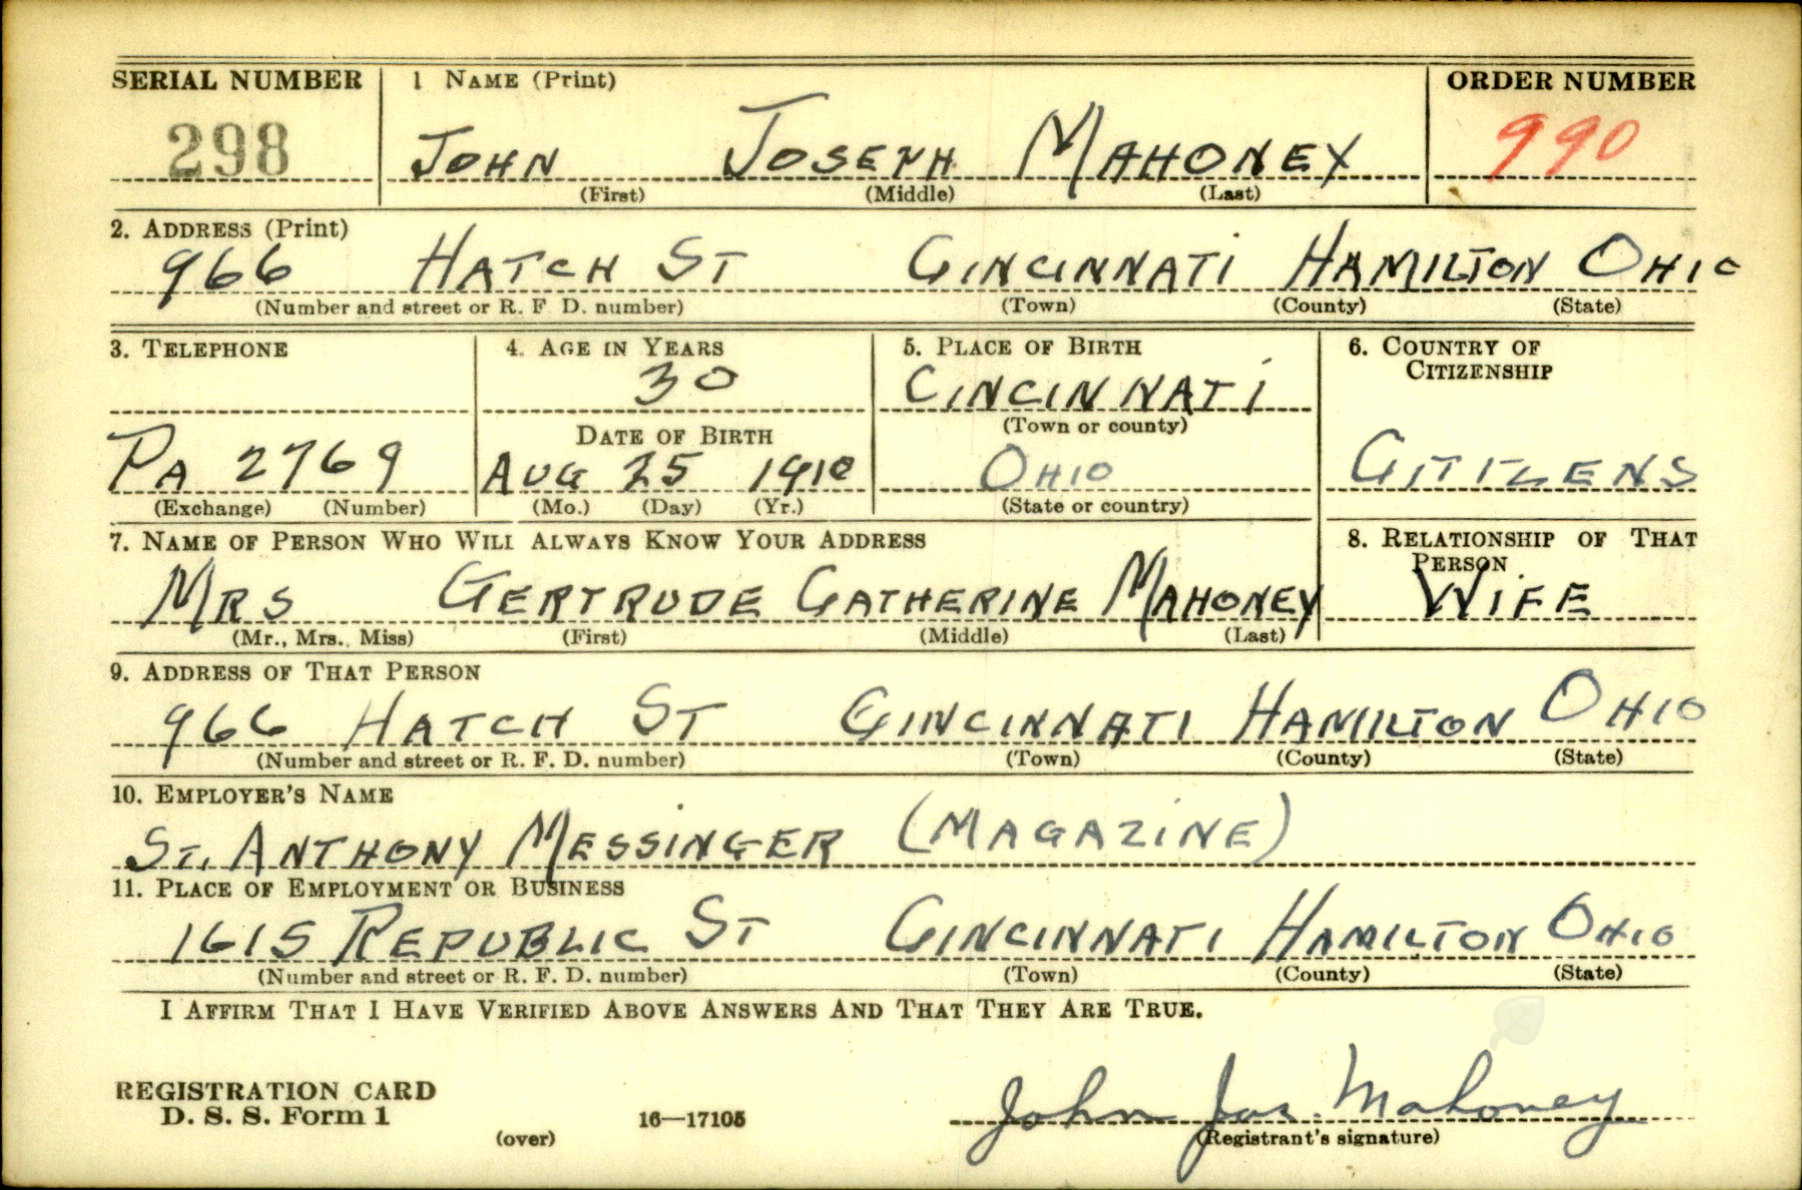 SERIAL NUMBER 1 NAME (Print) ORDER NUMBER
298 JOHN JOSEPH MAHONEY 990
(First) (Middle) (Last)
2. ADDRESS (Print)
966 HATCH ST CINCINNATI HAMILTON OHIO
(Number and street or R. F. D. number) (Town) (County) (State)
3. TELEPHONE 4. AGE IN YEARS 5. PLACE OF BIRTH 6. COUNTRY OF
CITIZENSHIP
30 CINCINNATI
(Town or county)
DATE OF BIRTH
PA 2769 AUG 25 1910 OHIO CITIZENS
(Exchange) (Number) (Mo.) (Day) (Yr.) (State or country)
7. NAME OF PERSON WHO WILL ALWAYS KNOW YOUR ADDRESS 8. RELATIONSHIP OF THAT
PERSON
MRS GERTRUDE CATHERINE MAHONEY WIFE
(Mr., Mrs., Miss) (First) (Middle) (Last)
9. ADDRESS OF THAT PERSON
966 HATCH ST CINCINNATI HAMILTON OHIO
(Number and street or R. F. D. number) (Town) (County) (State)
10. EMPLOYER'S NAME
ST. ANTHONY MESSINGER (MAGAZINE)
11. PLACE OF EMPLOYMENT OR BUSINESS
1615 REPUBLIC ST CINCINNATI HAMILTON OHIO
(Number and street or R. F. D. number) (Town) (County) (State)
I AFFIRM THAT I HAVE VERIFIED ABOVE ANSWERS AND THAT THEY ARE TRUE.
REGISTRATION CARD
D. S. S. Form 1 16—17105 John Jos. Mahoney
(over) (Registrant's signature)